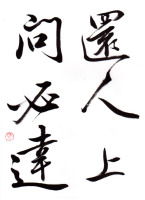 還人上
問必違